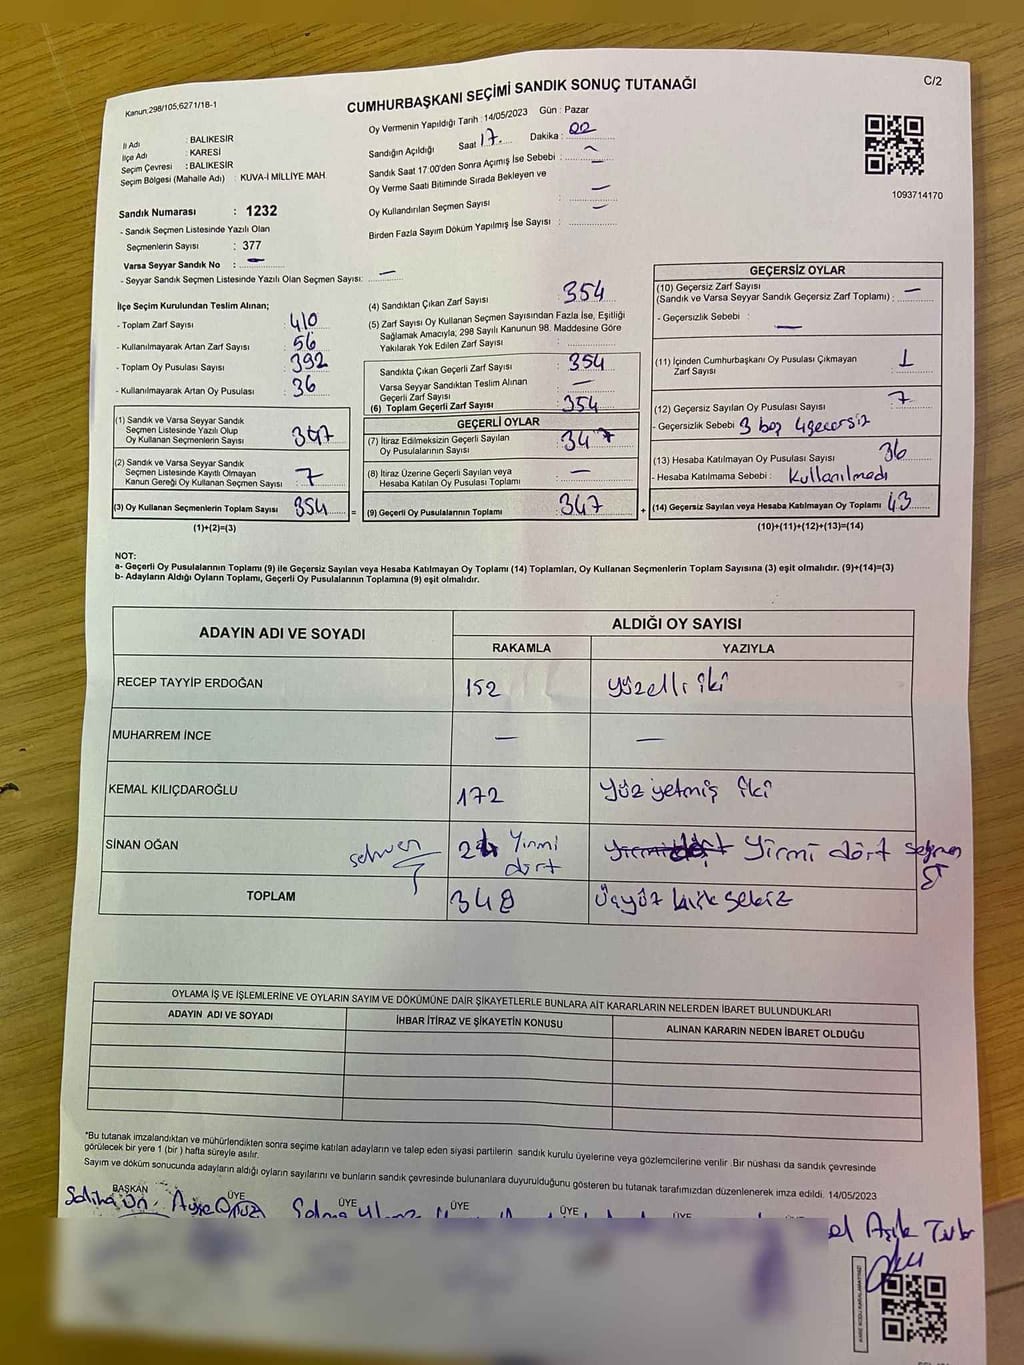 Kanun:298/105,6271/18-1
CUMHURBAŞKANI SEÇİMİ SANDIK SONUÇ TUTANAĞI
C/2
İl Adı : BALIKESİR
İlçe Adı : KARESİ
Seçim Çevresi : BALIKESİR
Seçim Bölgesi (Mahalle Adı) : KUVA-İ MİLLİYE MAH
Oy Vermenin Yapıldığı Tarih : 14/05/2023 Gün : Pazar
Sandığın Açıldığı Saat 17 Dakika : 00
Sandık Saat 17:00'den Sonra Açımış İse Sebebi :
Oy Verme Saati Bitiminde Sırada Bekleyen ve
Oy Kullandırılan Seçmen Sayısı : —
Birden Fazla Sayım Döküm Yapılmış İse Sayısı : —
1093714170
Sandık Numarası : 1232
- Sandık Seçmen Listesinde Yazılı Olan
Seçmenlerin Sayısı : 377
Varsa Seyyar Sandık No : —
- Seyyar Sandık Seçmen Listesinde Yazılı Olan Seçmen Sayısı: —
İlçe Seçim Kurulundan Teslim Alınan;
- Toplam Zarf Sayısı : 410
- Kullanılmayarak Artan Zarf Sayısı : 56
- Toplam Oy Pusulası Sayısı : 392
- Kullanılmayarak Artan Oy Pusulası : 36
(1) Sandık ve Varsa Seyyar Sandık
Seçmen Listesinde Yazılı Olup
Oy Kullanan Seçmenlerin Sayısı : 347
(2) Sandık ve Varsa Seyyar Sandık
Seçmen Listesinde Kayıtlı Olmayan
Kanun Gereği Oy Kullanan Seçmen Sayısı : 7
(3) Oy Kullanan Seçmenlerin Toplam Sayısı 354 =
(1)+(2)=(3)
(4) Sandıktan Çıkan Zarf Sayısı : 354
(5) Zarf Sayısı Oy Kullanan Seçmen Sayısından Fazla İse, Eşitliği
Sağlamak Amacıyla; 298 Sayılı Kanunun 98. Maddesine Göre
Yakılarak Yok Edilen Zarf Sayısı :
Sandıkta Çıkan Geçerli Zarf Sayısı : 354
Varsa Seyyar Sandıktan Teslim Alınan
Geçerli Zarf Sayısı : —
(6) Toplam Geçerli Zarf Sayısı : 354
GEÇERLİ OYLAR
(7) İtiraz Edilmeksizin Geçerli Sayılan
Oy Pusulalarının Sayısı : 347
(8) İtiraz Üzerine Geçerli Sayılan veya
Hesaba Katılan Oy Pusulası Toplamı : —
(9) Geçerli Oy Pusulalarının Toplamı : 347 +
GEÇERSİZ OYLAR
(10) Geçersiz Zarf Sayısı
(Sandık ve Varsa Seyyar Sandık Geçersiz Zarf Toplamı) : —
- Geçersizlik Sebebi : —
(11) İçinden Cumhurbaşkanı Oy Pusulası Çıkmayan
Zarf Sayısı : 1
(12) Geçersiz Sayılan Oy Pusulası Sayısı : 7
- Geçersizlik Sebebi 3 boş 4 geçersiz
(13) Hesaba Katılmayan Oy Pusulası Sayısı 36
- Hesaba Katılmama Sebebi : Kullanılmadı
(14) Geçersiz Sayılan veya Hesaba Katılmayan Oy Toplamı 43
(10)+(11)+(12)+(13)=(14)
NOT:
a- Geçerli Oy Pusulalarının Toplamı (9) ile Geçersiz Sayılan veya Hesaba Katılmayan Oy Toplamı (14) Toplamları, Oy Kullanan Seçmenlerin Toplam Sayısına (3) eşit olmalıdır. (9)+(14)=(3)
b- Adayların Aldığı Oyların Toplamı, Geçerli Oy Pusulalarının Toplamına (9) eşit olmalıdır.
ADAYIN ADI VE SOYADI
ALDIĞI OY SAYISI
RAKAMLA YAZIYLA
RECEP TAYYİP ERDOĞAN 152 Yüzelli iki
MUHARREM İNCE — —
KEMAL KILIÇDAROĞLU 172 Yüz yetmiş iki
SİNAN OĞAN 24 Yirmi dört Yirmi dört
TOPLAM 348 Üçyüz kırk sekiz
OYLAMA İŞ VE İŞLEMLERİNE VE OYLARIN SAYIM VE DÖKÜMÜNE DAİR ŞİKAYETLERLE BUNLARA AİT KARARLARIN NELERDEN İBARET BULUNDUKLARI
ADAYIN ADI VE SOYADI İHBAR İTİRAZ VE ŞİKAYETİN KONUSU ALINAN KARARIN NEDEN İBARET OLDUĞU
*Bu tutanak imzalandıktan ve mühürlendikten sonra seçime katılan adayların ve talep eden siyasi partilerin sandık kurulu üyelerine veya gözlemcilerine verilir .Bir nüshası da sandık çevresinde
görülecek bir yere 1 (bir ) hafta süreyle asılır.
Sayım ve döküm sonucunda adayların aldığı oyların sayılarını ve bunların sandık çevresinde bulunanlara duyurulduğunu gösteren bu tutanak tarafımızdan düzenlenerek imza edildi. 14/05/2023
BAŞKAN ÜYE ÜYE ÜYE ÜYE ÜYE
Saliha Ün